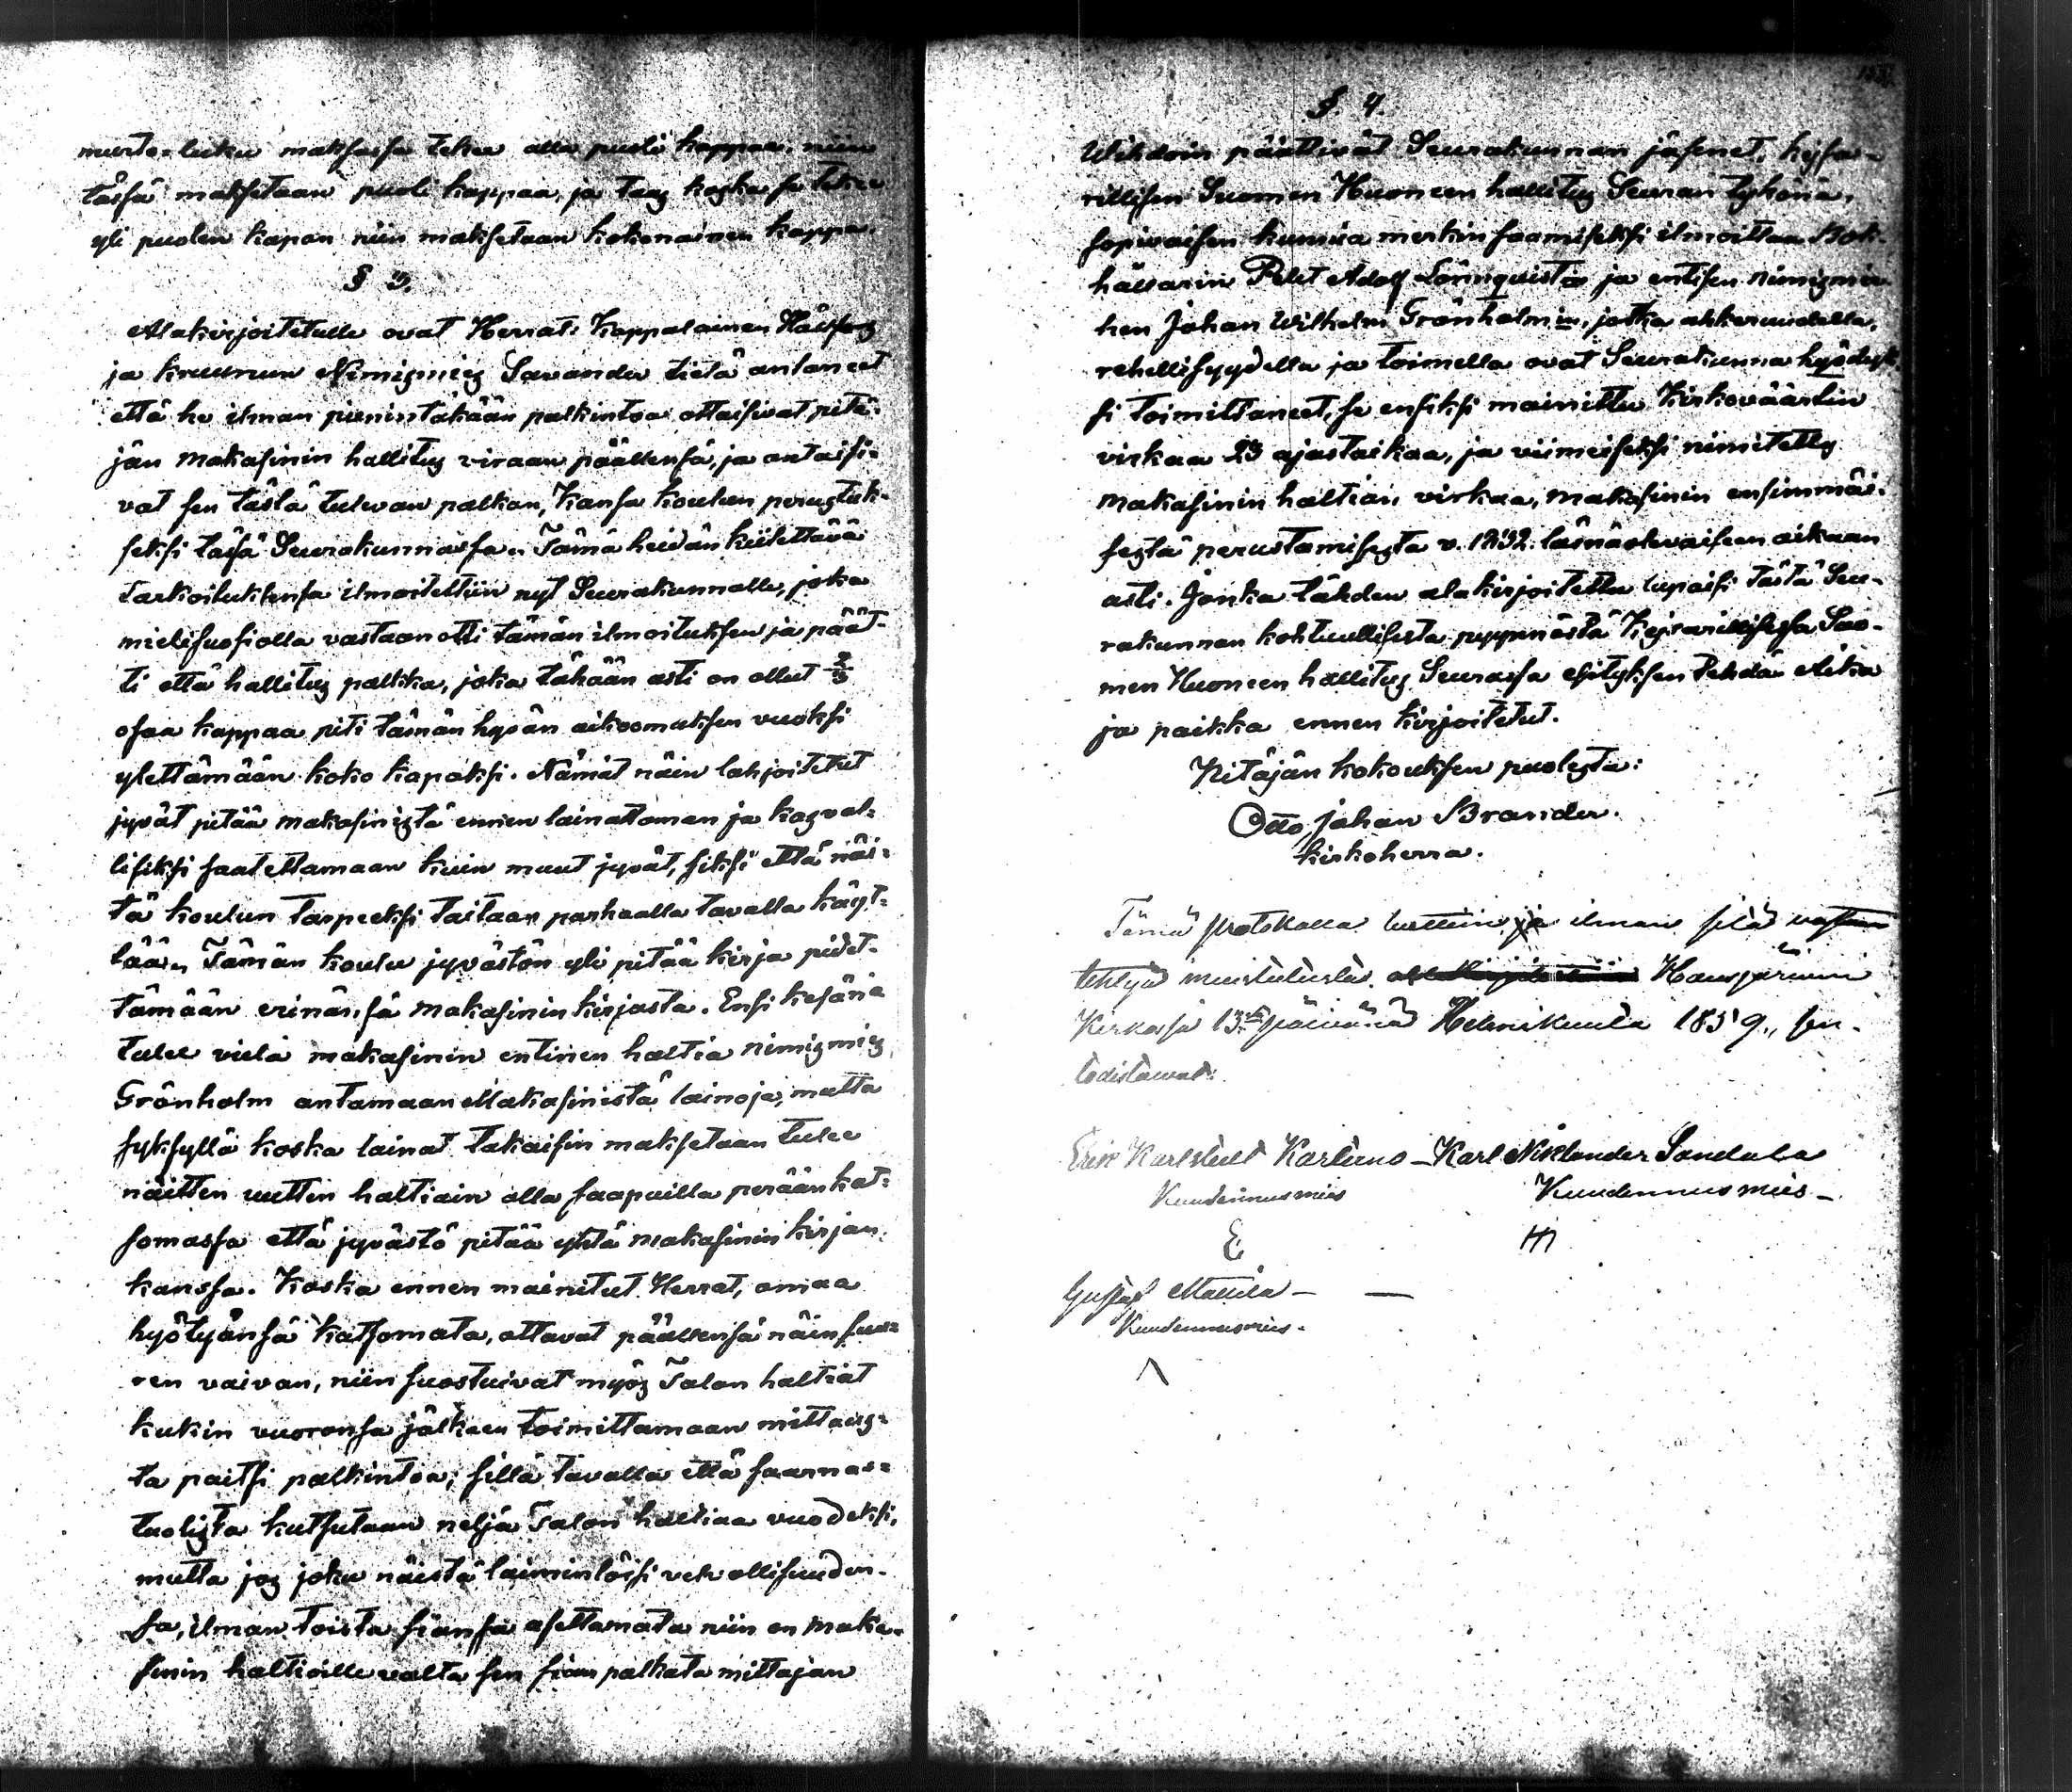 murto-luku maksossa tekee alla puoli kappaa, niin
tässä maksetaan puoli kappaa, ja taas koska se tekee
yli puolen kapan niin maksetaan kokonainen kappa.
§ 3.
Alakirjoitetulle ovat Herrat: Kappalainen
ja kruunun Nimismies Savander tietä antaneet
että he ilman pienintäkään palkintoa ottaisivat pitä-
jän makasinin hallitus viraan päällensä, ja antaisi-
vat sen tästä tulevan palkan, Kansa koulun perustuk-
seksi tässä Seurakunnassa. Tämä heidän kiitettävä
Tarkoituksensa ilmoitettiin nyt Seurakunnalle, joka
mielisuosiolla vastaanotti tämän ilmoituksen ja päät-
ti että hallitus palkka, joka tähään asti on ollut 2/3
osaa kappaa piti tämän hyvän aikoomuksen vuoksi
ylettämään koko kapaksi. Nämät näin lahjoitetut
jyvät pitää makasinista ennen lainattaman ja kasval-
lisiksi saatettamaan kuin muut jyvät, siksi että näi-
tä koulun tarpeeksi taitaan parhaalla tavalla käyt-
tää. Tämän koulu jyvästön yli pitää kirja pidet-
tämään erinänsä makasinin kirjasta. Ensi kesänä
tulee vielä makasinin entinen haltia nimismies
Grönholm antamaan Makasinista lainoja, mutta
syksyllä koska lainat takaisin maksetaan tulee
näitten uutten haltiain olla saapuilla peräänkat-
somassa että jyvästö pitää yhtä makasinin kirjan
kanssa. Koska ennen mainitut Herrat, omaa
hyötyänsä katsomata, ottavat päällensä näin suu-
ren vaivan, niin suostuivat myös Talon haltiat
kukin vuoronsa jälkeen toimittamaan mittaus-
ta paitsi palkintoa; sillä tavalla että saarnas-
tuolista kutsutaan neljä Talon haltiaa vuodeksi,
mutta jos joku näistä laiminlöisi velvollisuuden-
sa, ilman toista siansa asettamata niin on maka-
sinin haltioille valta sen siaan palkata mittajan
§. 4.
Wihdoin päättivät Seurakunnan jäsenet,
rillisen Suomen Huoneen hallitus Seuran tykönä,
sopivaisen kunnia merkin saamiseksi ilmoittaa Bok-
hållarin Adolf Lönnqvistin ja entisen nimismie-
hen Johan Wilhelm Grönholmin, jotka ahkeruudella,
rehellisyydellä ja toimella ovat Seurakunna hyödyk-
si toimittaneet, se ensiksi mainittu Kirkoväärtin
virkaa 23 ajastaikaa, ja viimeiseksi nimitetty
makasinin haltian virkaa, makasinin ensimmäi-
sestä perustamisesta v. 1832 läsnäolevaiseen aikaan
asti. Jonka tähden alakirjoitettu lupaisi tästä Seu-
rakunnan kohtuullisesta pyynnöstä Kejsarillisessa Suo-
men Huoneen hallitus Seurassa esityksen tehdä. Aika
ja paikka ennen kirjoitetut.
Pitäjän kokouksen puolesta:
Otto Johan Brander.
kirkoherra.
Tämä protokolla luettiin ja ilman sitä vastaan
tehtyä muistutusta Hausjärven
Kirkossa 13 päivänä Helmikuuta 1859, sen
todistavat:
Erik Karlstedt Karluno – Karl Niklander Sandula
Kuudennusmies Kuudennusmies –
E
Gustaf Mattila –
Kuudennusmies.